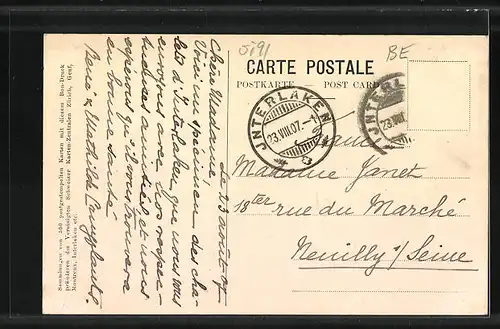 5191
BE
CARTE POSTALE
POSTKARTE POST CARD
JNTERLAKEN
23.VIII.07.-1
JNTERLAKEN
23.VIII
Madame Janet
18ter rue du Marché
Neuilly s/ Seine
le 23 août 07
Chère Madame,
Voici un spécimen des cha-
lets d'Interlaken que nous vous
envoyons avec nos respec-
tueuses amitiés et nous
espérons qu'il vous trouvera
en bonne santé
René & Mathilde
Sammlungen von 3500 postgestempelten Karten mit diesem Bon-Druck
prämiiren die Vereinigten Schweizer Karten-Zentralen Zürich, Genf,
Montreux, Interlaken etc.